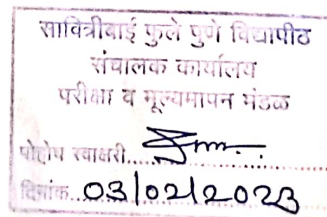 सावित्रीबाई फुले पुणे विद्यापीठ
संचालक कार्यालय
परीक्षा व मूल्यमापन मंडळ
पोहोच स्वाक्षरी
दिनांक 03/02/2023